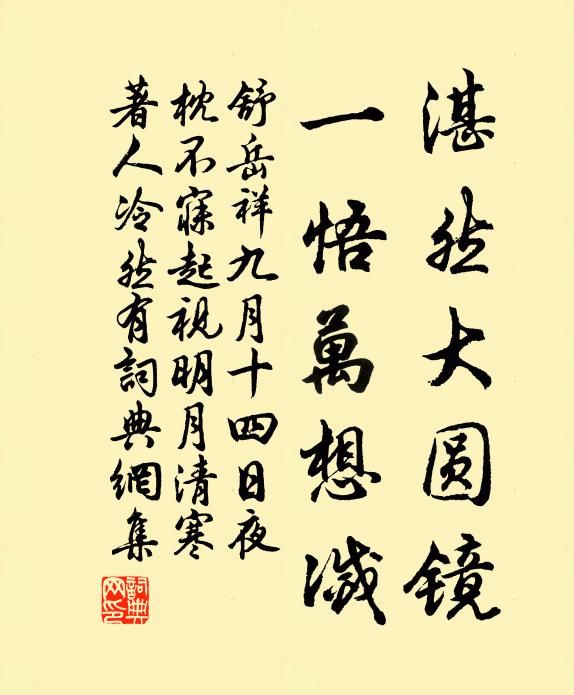 湛然大圆镜
一悟萬想滅
舒岳祥九月十四日夜
枕不寐起視明月清寒
著人冷然有詞典網集
詞典
网印